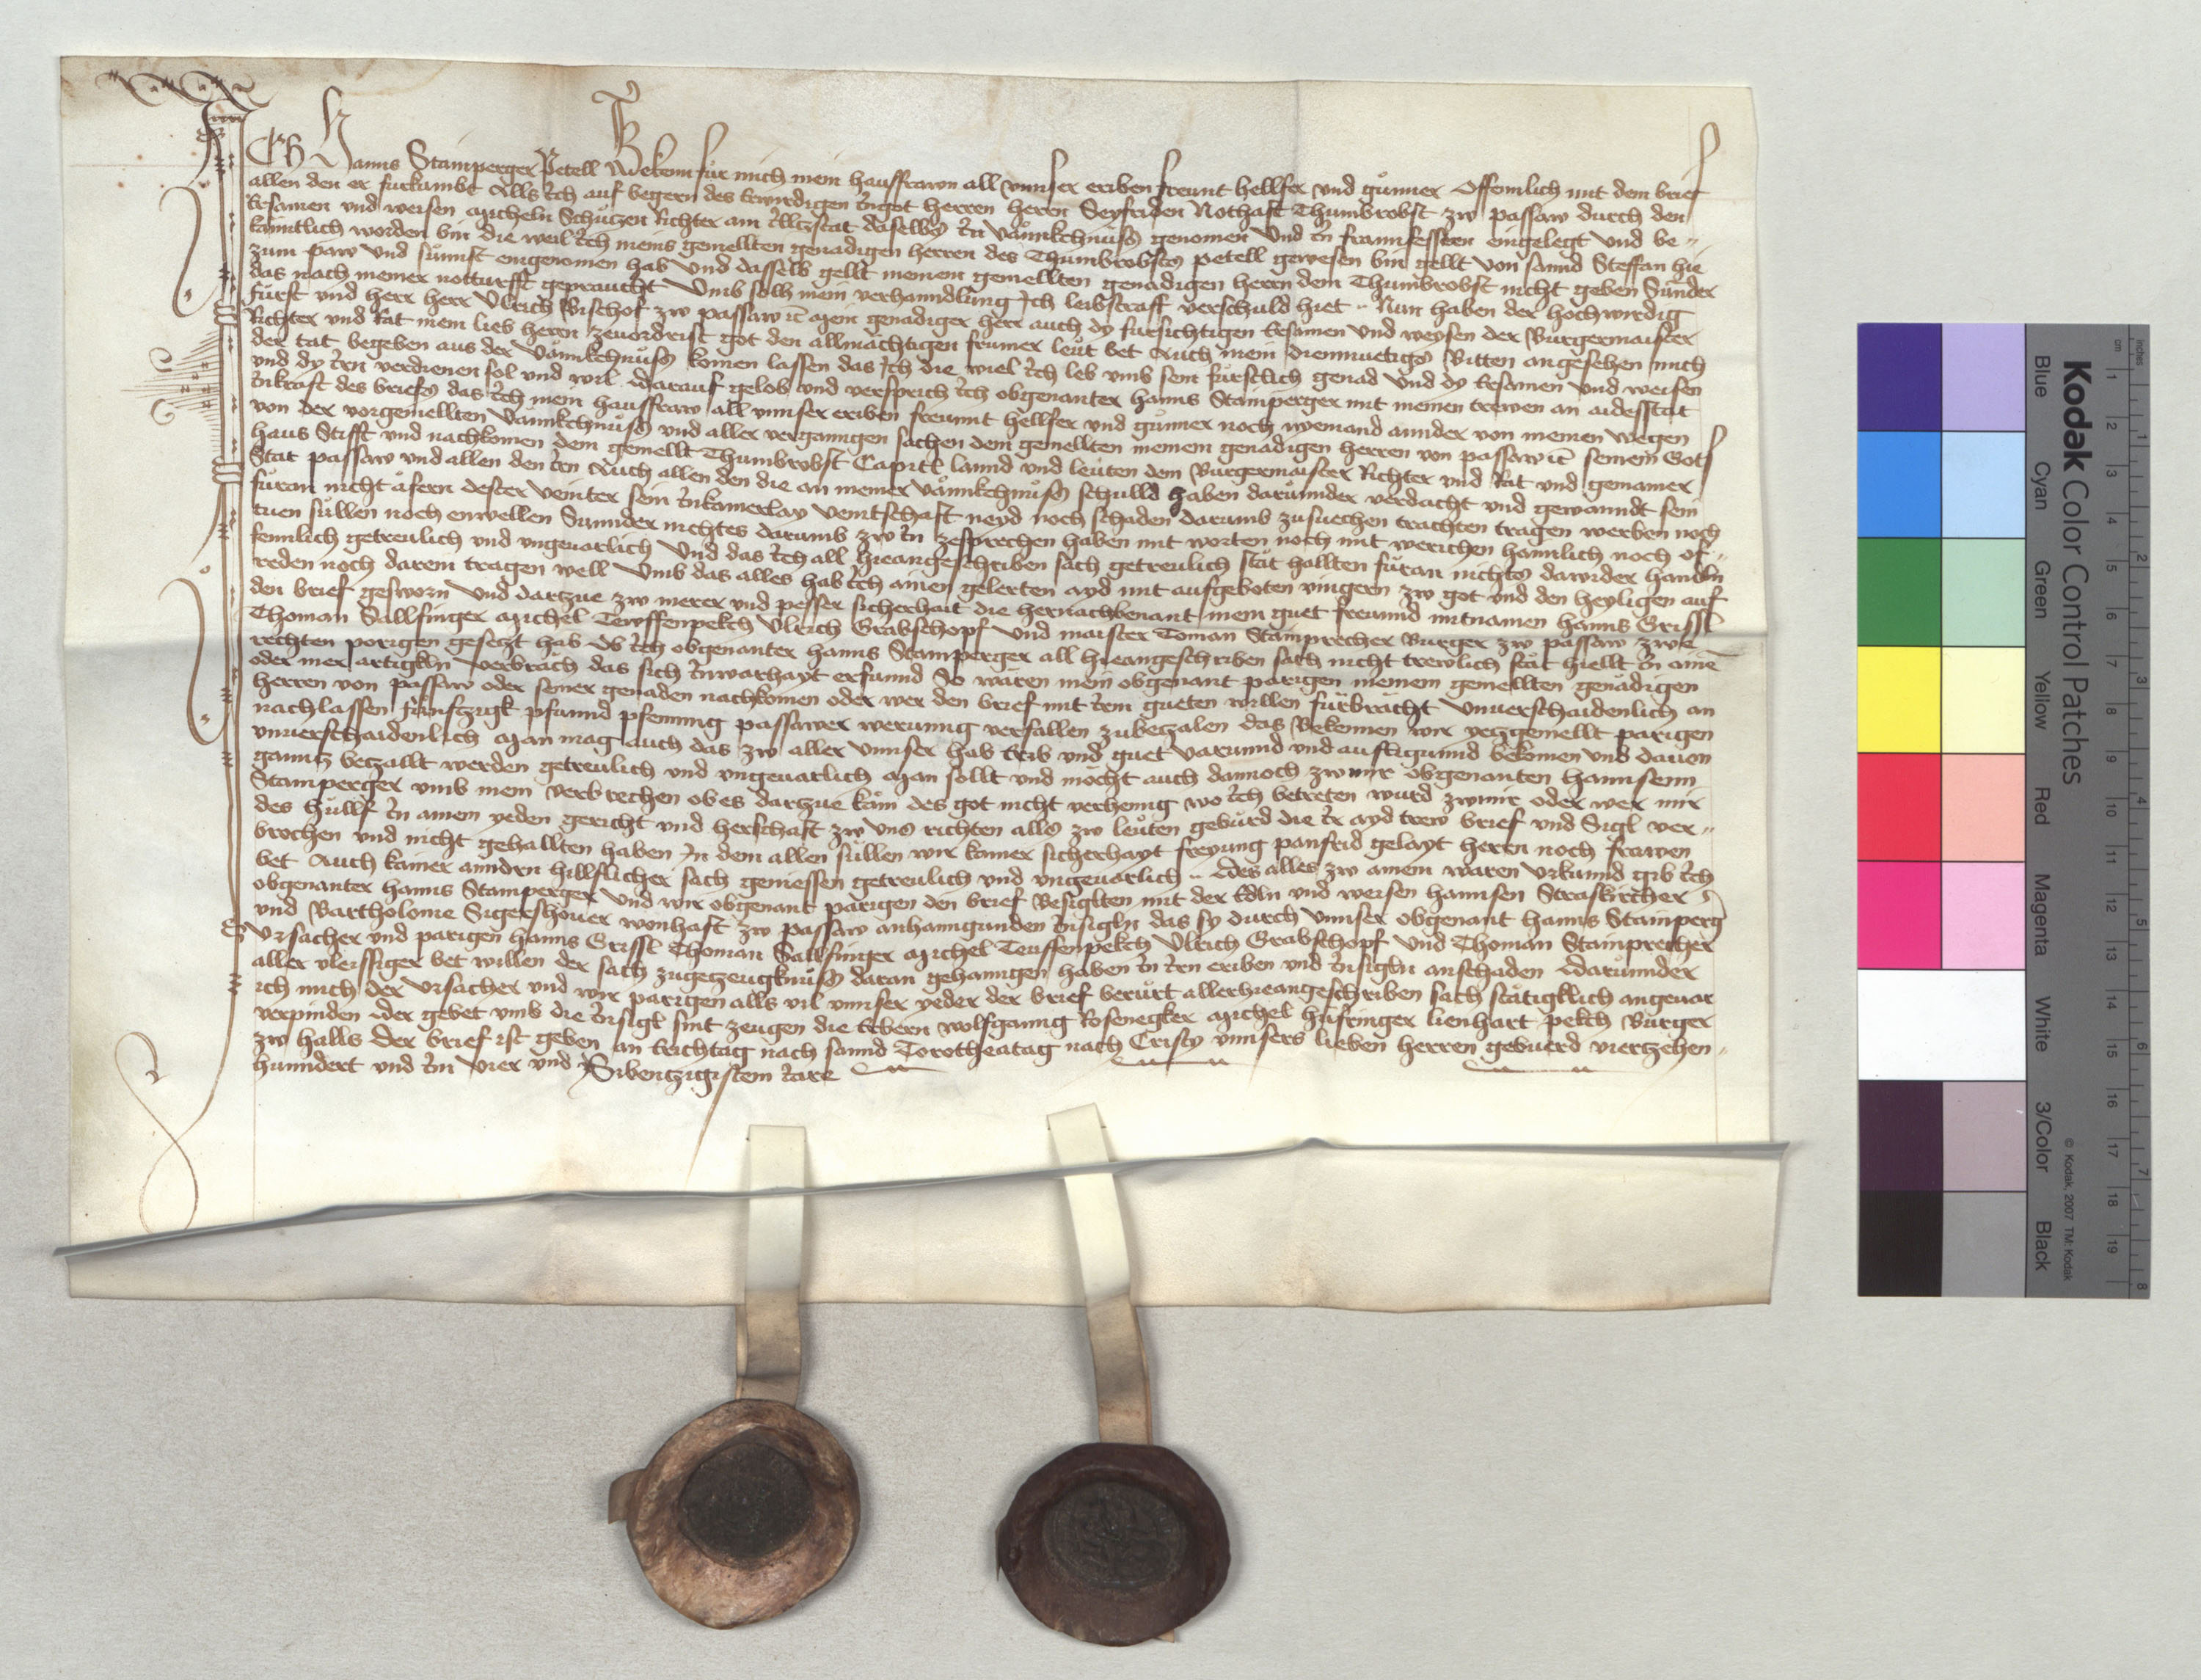 Ich Hanns Stamperger Petell Bekenn für mich mein hausfrawn all unnser eriben freunt hellfer und gůnner Offennlich mit dem brief
allen den er furkumbt Alls ich auf begern des Erwirdigen in got herren herren Seyfriden Nothaft Thumbrobst zw passaw durch den
Ersamen und weisen Micheln Schůtzen Richter am Illtzstat daselbs in vännkchnůss genomen Und in frannfessten eingelegt und be-
kanntlich worden bin die weil ich meins gemellten genadigen herren des Thumbrobsts petell gewesen bin gellt von sannd Steffan hie
zum paw und sůnnst eingenomen hab Und dasselb gellt meinem gemellten genadigen herrn dem Thumbrobst nicht geben Sůnder
das nach meiner notturfft gepraucht Umb solh mein verhanndlung Ich leibstraff verschuld hiet Nun haben der hochwirdig
fůrst und herr herr Ulrich Bischof zw passaw etc mein genadiger herr auch dy fursichtigen Ersamen und weysen der Burgermaister
Richter und Rat mein lieb herrn zeuordrist got den allmächtigen frumer leůt bet Auch mein diemuetigs Bitten angesehen mich
der tat begeben aus der vännkchnůss komen lassen das ich die weil ich leb umb sein fůrstlich genad Und dy Ersamen und weisen
und dy irn verdienen sol und wil Darauf gelob und versprich ich obgenanter hanns Stamperger mit meinen trewen an aidesstat
inkraft des briefs das ich mein hausfraw all unnser eriben freunnt hellfer und gůnner noch nyemand annder von meinen wegen
von der vorgemellten vännkchnůss und aller verganngen sachen dem gemellten meinem genadigen herren von passaw etc seinem Gots
haus Stifft und nachkomen dem gemellt Thumbrobst Capitl lannd und leuten dem Burgermaister Richter und Rat und gemainer
Stat passaw und allen den irn Auch allen den die an meiner vännkchnůss schulld haben darůnnder verdacht und gewanndt sein
fůran nicht äfern dester veinter sein inkainerlay veintschaft neyd noch schaden darumb zusuechen trachten tragen werben noch
tuen sůllen noch enwellen Sunnder nichtes darumb zw in zesprechen haben mit worten noch mit werichen haimlich noch of-
fennlich getreulich und ungeuarlich Und das ich all hieangeschriben sach getreulich stät hallten fůran nichts dawider handln
reden noch darein tragen well Umb das alles hab ich ainen gelerten ayd mit aufgeboten vingern zw got und den heyligen auf
den brief gesworn Und dartzue zw merer und pesser sicherhait die hernachbenant mein guet freunnd mitnamen hanns Grissl
Thoman Sallfinger Michel Tewffenpekch Ulrich Grabschopf Und maister Toman Stamprecher Burger zw passaw zwe
rechten porigen gesetzt hab Ob ich obgenanter hanns Stamperger all hieangeschriben sach nicht trewlich stät hiellt in aine
oder mer artigkln verbräch das sich inwarhayt erfunnd So wären mein obgenant parigen meinem gemellten genädigen
herren von passaw oder seiner genaden nachkomen oder wer den brief mit irem gueten willen fůrbracht Unuerschaidenlich an
nachlassen fünftzigk pfunnd pfenning passawer werunng verfallen zubetzalen das Bekennen wir yetzgemellt parigen
unuerschaidenlich Man mag auch das zw aller unnser hab Erib und guet varunnd und aufligunnd bekomen und dauon
ganntz betzallt werden getreulich und ungeuarlich Man sollt und möcht auch dannoch zw mir obgenanten hannsenn
Stamperger umb mein verbrechen ob es dartzue käm des got nicht verhenng wo ich betreten wurd zwmir oder wer mir
des hůllf in ainem yeden gericht und herschaft zw uns richten alls zw leůten gebůrd die ir ayd trew brief und Sigl ver-
brochen und nicht gehallten haben In dem allen sůllen wir kainer sicherhayt freyung panfrid gelayt herrn noch frawen
bet Auch kainer anndrn hillflicher sach geniessen getreulich und ungeuarlich Des alles zw ainem waren Urkunnd gib ich
obgenanter hanns Stamperger Und wir obgenant parigen den brief Besiglten mit der Edln und weisen hannsen Straskircher
und Bartholome Sigershouer wonhaft zw passaw anhanngunden Insigln das sy durch unnser obgenant hanns Stamperg
Ursacher und parigen hanns Grissl Thoman Sallfinger Michel Teuffenpekch Ulrich Grabschopf Und Thoman Stamprecher
aller vleissiger bet willen der sach zugetzeugknůss daran gehanngen haben in irn eriben und Insigln anschaden Darůnnder
ich mich der Ursacher und wir parigen alls vil unnser yeder der brief berůrt allerhieangeschriben sach stätigklich angeuar
verpinden Der gebet umb die Insigl sint zeugen die Erbern wolfganng Rosenegker Michel hůfringer lienhart pekch Burger
zw halls Der brief ist geben an Erichtag nach sannd Torotheatag nach Cristy unnsers lieben herren gebuerd viertzehen-
hunndert und im vier und Sibentzigistem iare
Kodak Color Control Patches
Blue Cyan Green Yellow Red Magenta White 3/Color Black
© Kodak, 2007 TM: Kodak
inches 1 2 3 4 5 6 7 8
cm 1 2 3 4 5 6 7 8 9 10 11 12 13 14 15 16 17 18 19